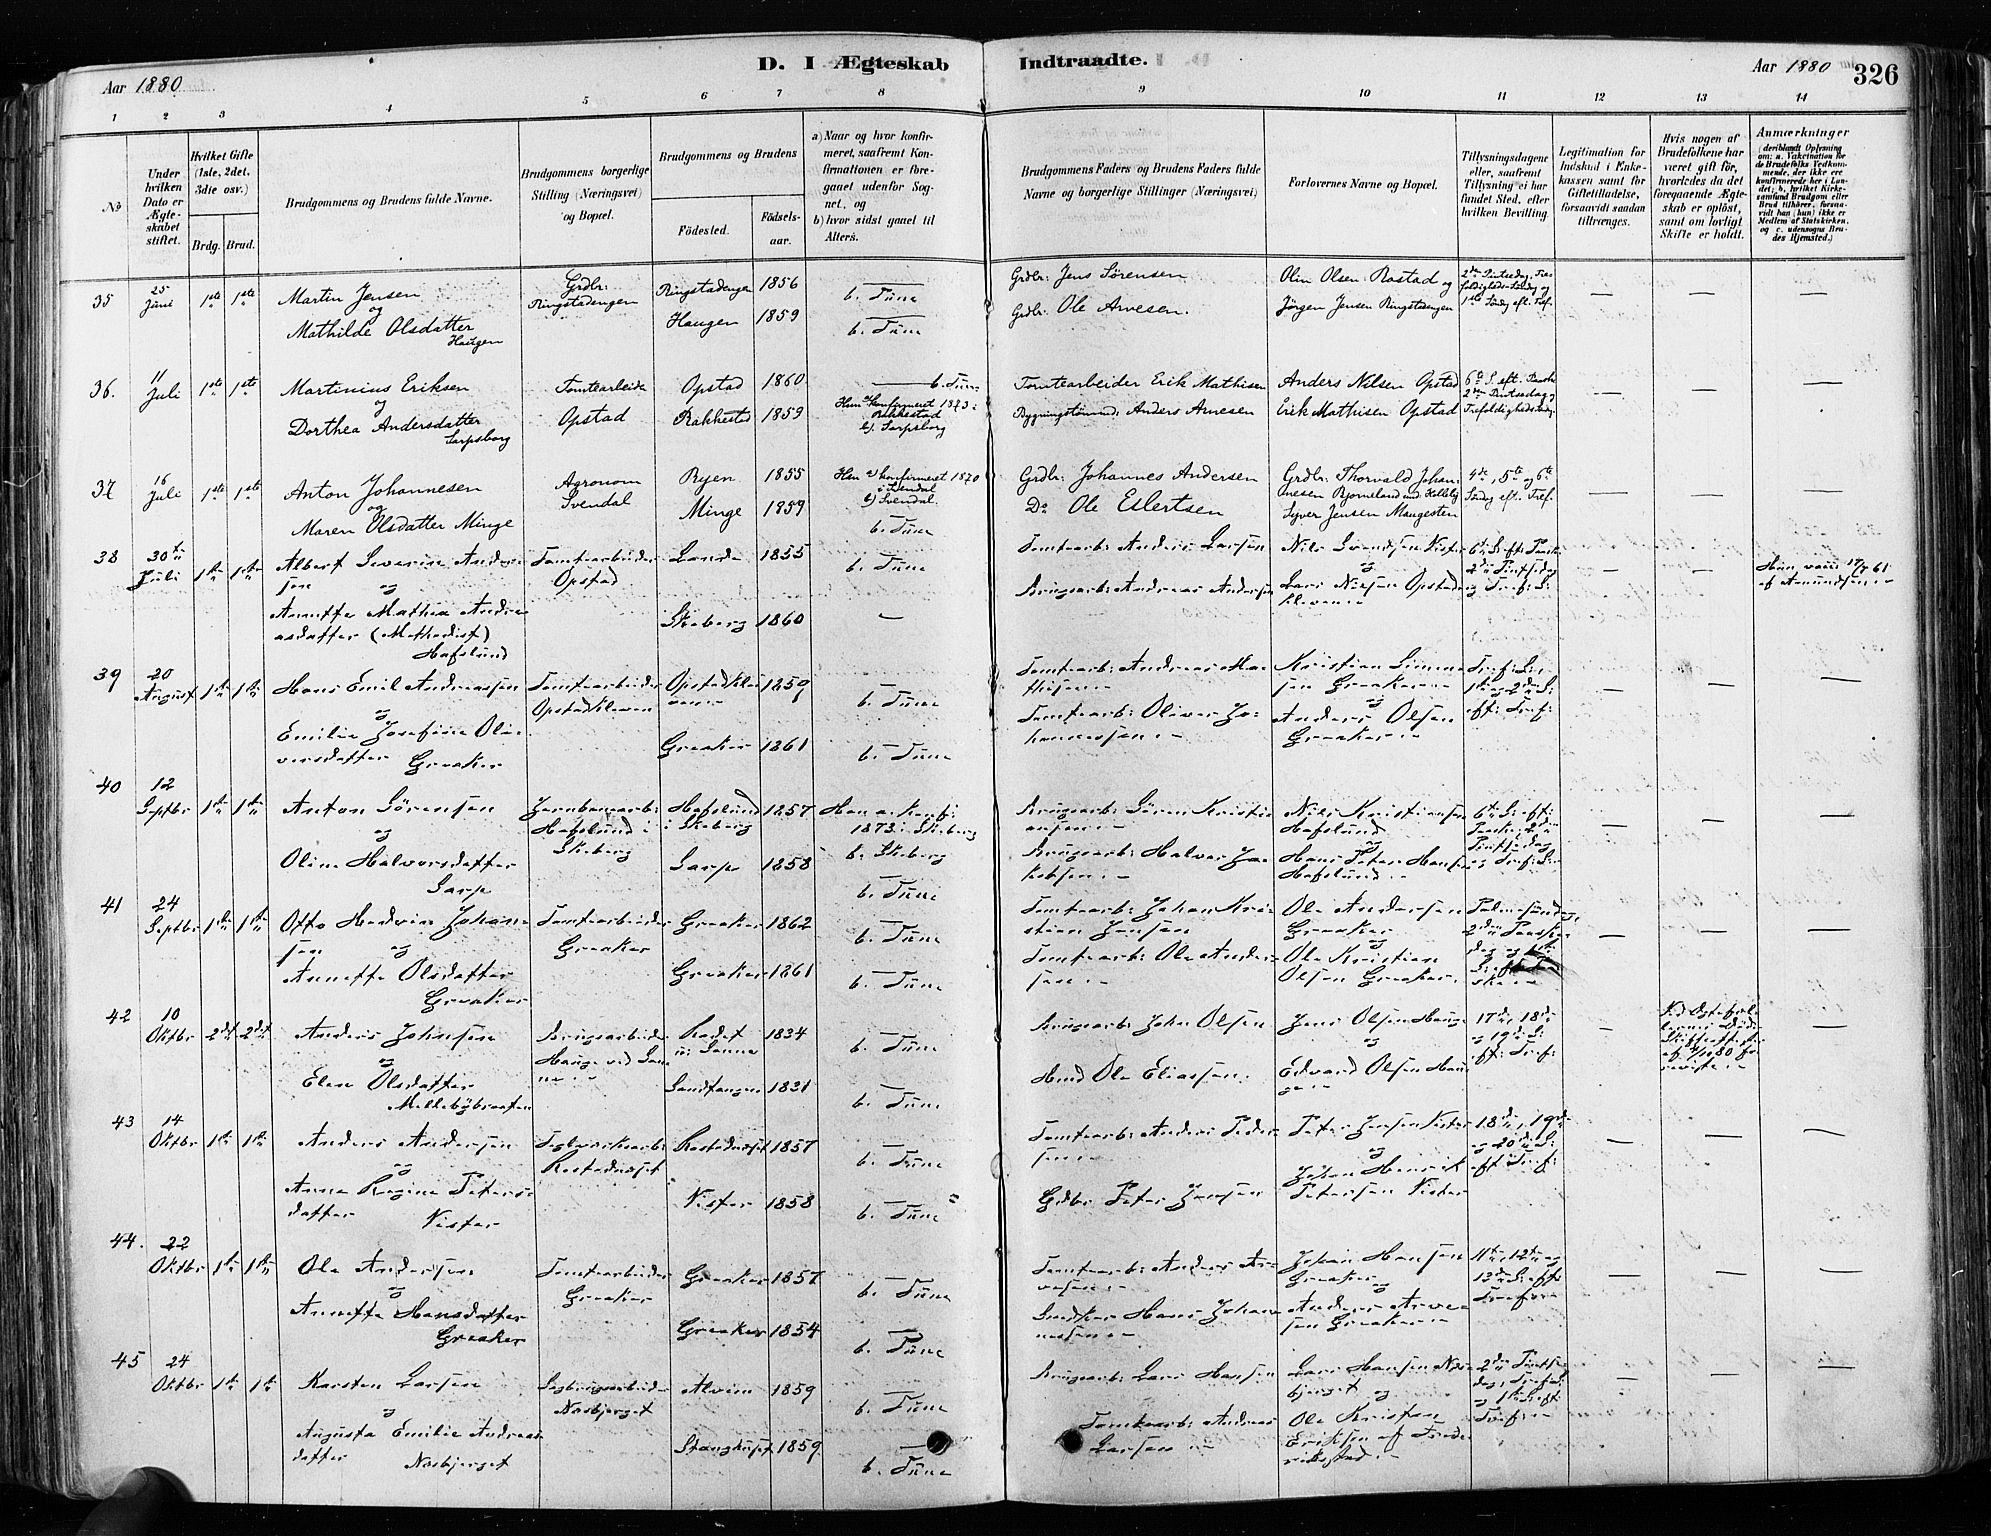 Aar 1880.
D. I Ægteskab
Indtraadte.
Aar 1880
326
1 2 3 4 5 6 7 8 9 10 11 12 13 14
No
Under hvilken Dato er Ægteskabet stiftet.
Hvilket Gifte (1ste, 2det, 3die osv.)
Brdg. Brud.
Brudgommens og Brudens fulde Navne.
Brudgommens borgerlige Stilling (Næringsvei) og Bopæl.
Brudgommens og Brudens
Fødested.
Fødselsaar.
a) Naar og hvor konfirmeret, saafremt Konfirmationen er foregaaet udenfor Sognet, og
b) hvor sidst gaaet til Alters.
Brudgommens Faders og Brudens Faders fulde Navne og borgerlige Stillinger (Næringsvei)
Forlovernes Navne og Bopæl.
Tillysningsdagene eller, saafremt Tillysning ei har fundet Sted, efter hvilken Bevilling.
Legitimation for Indskud i Enkekassen samt for Giftetilladelse, forsaavidt saadan tiltrænges.
Hvis nogen af Brudefolkene har været gift før, hvorledes da det foregaaende Ægteskab er opløst, samt om lovligt Skifte er holdt.
Anmærkninger
(deriblandt Oplysning om: a. Vakcination for de Brudefolks Vedkommende, der ikke ere konfirmerede her i Landet; b. hvilket Kirkesamfund Brudgom eller Brud tilhører, forsaavidt han (hun) ikke er Medlem af Statskirken, og c. udensogns Brudes Hjemsted.)
35 25 Juni 1ste 1ste
Martin Jensen
og
Mathilde Olsdatter
Haugen
Grdbr. Ringstadengen
Ringstadengen 1856
Haugen 1859
b. Tune
b. Tune
Grdbr. Jens Sørensen
Grdbr. Ole Arvesen.
Olin Olsen Rostad og
Jørgen Jensen Ringstadengen
2den Pintsedag, Trefoldigheds-Søndag og
1ste Søndg eft. Tref.
36. 11 Juli 1ste 1ste
Martinius Eriksen
og
Dorthea Andersdatter
Sarpsborg
Tomtearbeide
Opstad
Opstad 1860
Rakkestad 1859
b. Tune
Hun a) Konfirmeret 1873 i
Rakkestad
b) Sarpsborg
Tomtearbeider Erik Mathisen
Bygningstømmd: Anders Arnesen
Anders Nilsen Opstad
Erik Mathisen Opstad
6te S. eft. Paaske
2den Pintsedag og
Trefoldighedssøndg.
37 16 Juli 1ste 1ste
Anton Johannesen
og
Maren Olsdatter Minge
Agronom
Svendal
Ryen 1855
Minge 1859
Han a) Konfirmeret 1870
i Svendal
b) Svendal
b. Tune
Grdbr: Johannes Andersen
Do Ole Eilertsen
Grdbr: Thorvald Johannesen
Syver Jensen Maugesten
4de, 5te og 6te
Søndg eft. Tref.
38 30te Juli 1ste 1ste
Albert Severin Andersen
og
Annette Mathea Andreasdatter (Methodist)
Hafslund
Tomtearbeider
Opstad
Lande 1855
Skeberg 1860
b. Tune
Tomtearb: Anders Larsen
Brugsarb: Andreas Andersen
Nils Svendsen Nister
og
Lars Nilsen Opstadkleven
6te S. eft: Paaske
2den Pintsedag
og Tref: S:
39 20 August 1ste 1ste
Hans Emil Andreassen
og
Emilie Josefine Oliversdatter Greaker
Tomtearbeider
Opstadkleven
Opstadkleven 1859
Greaker 1861
b. Tune
b. Tune
Tomtearb: Andreas Mathisen
Tomtearb: Oliver Johannessen
Kristian Simensen Greaker
og
Anders Olsen
Greaker
Tref: S:
1ste og 2den S:
eft: Tref:
40 12 Septbr 1ste 1ste
Anton Sørensen
og
Oline Halvorsdatter
Sarp
Jernbanearb:
Hafslund i
Skeberg
Hafslund
i Skeberg 1857
Sarp 1858
Han a. Konf:
1873 i Skeberg
b. Skeberg
b. Tune
Brugsarb: Søren Kristiansen
Brugsarb: Halvor Jakobsen
Nils Kristiansen
Hafslund
og
Hans Peter Hansen
Hafslund
6te S: eft:
Paaske, 2den
Pintsedag
og Tref: S:
41 24 Septbr 1ste 1ste
Otto Hedvin Johansen
og
Annette Olsdatter
Greaker
Tomtearbeider
Greaker
Greaker 1862
Greaker 1861
b. Tune
b. Tune
Tomtearb: Johan Kristian Jensen
Tomtearb: Ole Andersen
Ole Andersen
Greaker
og
Ole Kristian
Olsen Greaker
Palmesøndag,
2den Paaskedag og
42 10 Oktbr 2det 2det
Anders Johnsen
og
Elen Olsdatter
Mellebybraaten
Brugsarbeider
Hauge ved Sanne
Rødet
v: Sanne 1834
Sandtangen 1831
b. Tune
b. Tune
Brugsarb: John Olsen
Hmd Ole Eliassen.
Jens Olsen Hauge
og
Edvard Olsen Hauge
17de, 18de
og 19de S:
eft: Tref:
43 14 Oktbr 1ste 1ste
Anders Andersen
og
Anne Regine Petersdatter
Nister
Teglverksarb:
Rostadødset
Rostadødset 1857
Nister 1858
b. Tune
b. Tune
Tomtearb: Anders Pedersen
Gdbr Peter Jensen
Peter Jensen Nister
og
Johan Henrik
Petersen Nister
18de, 19de
og 20de S:
eft: Tref:
44. 22 Oktbr 1ste 1ste
Ole Andersen
og
Annette Hansdatter
Greaker
Tomtearbeider
Greaker
Greaker 1857
Greaker 1854
b. Tune
b. Tune
Tomtearb: Anders Arvesen
Hans Johannessen
Johan Hansen
Greaker
og
Anders Arvesen Greaker
11te, 12te og
13de S: eft:
Tref:
45 24 Oktbr 1ste 1ste
Karsten Larsen
og
Augusta Emilie Andreasdatter
Nesbjerget
Sagbrugsarbeider
Nesbjerget
Alvim 1859
Stanghuset 1859
b. Tune
b. Tune
Brugsarb: Lars Hansen
Tomtearb: Andreas
Larsen
Lars Hansen Nesbjerget
og
Ole Kristian
Eriksen af Fredrikstad
2den Pintsedag, Tref: S:
og 1ste S: eft:
Tref: